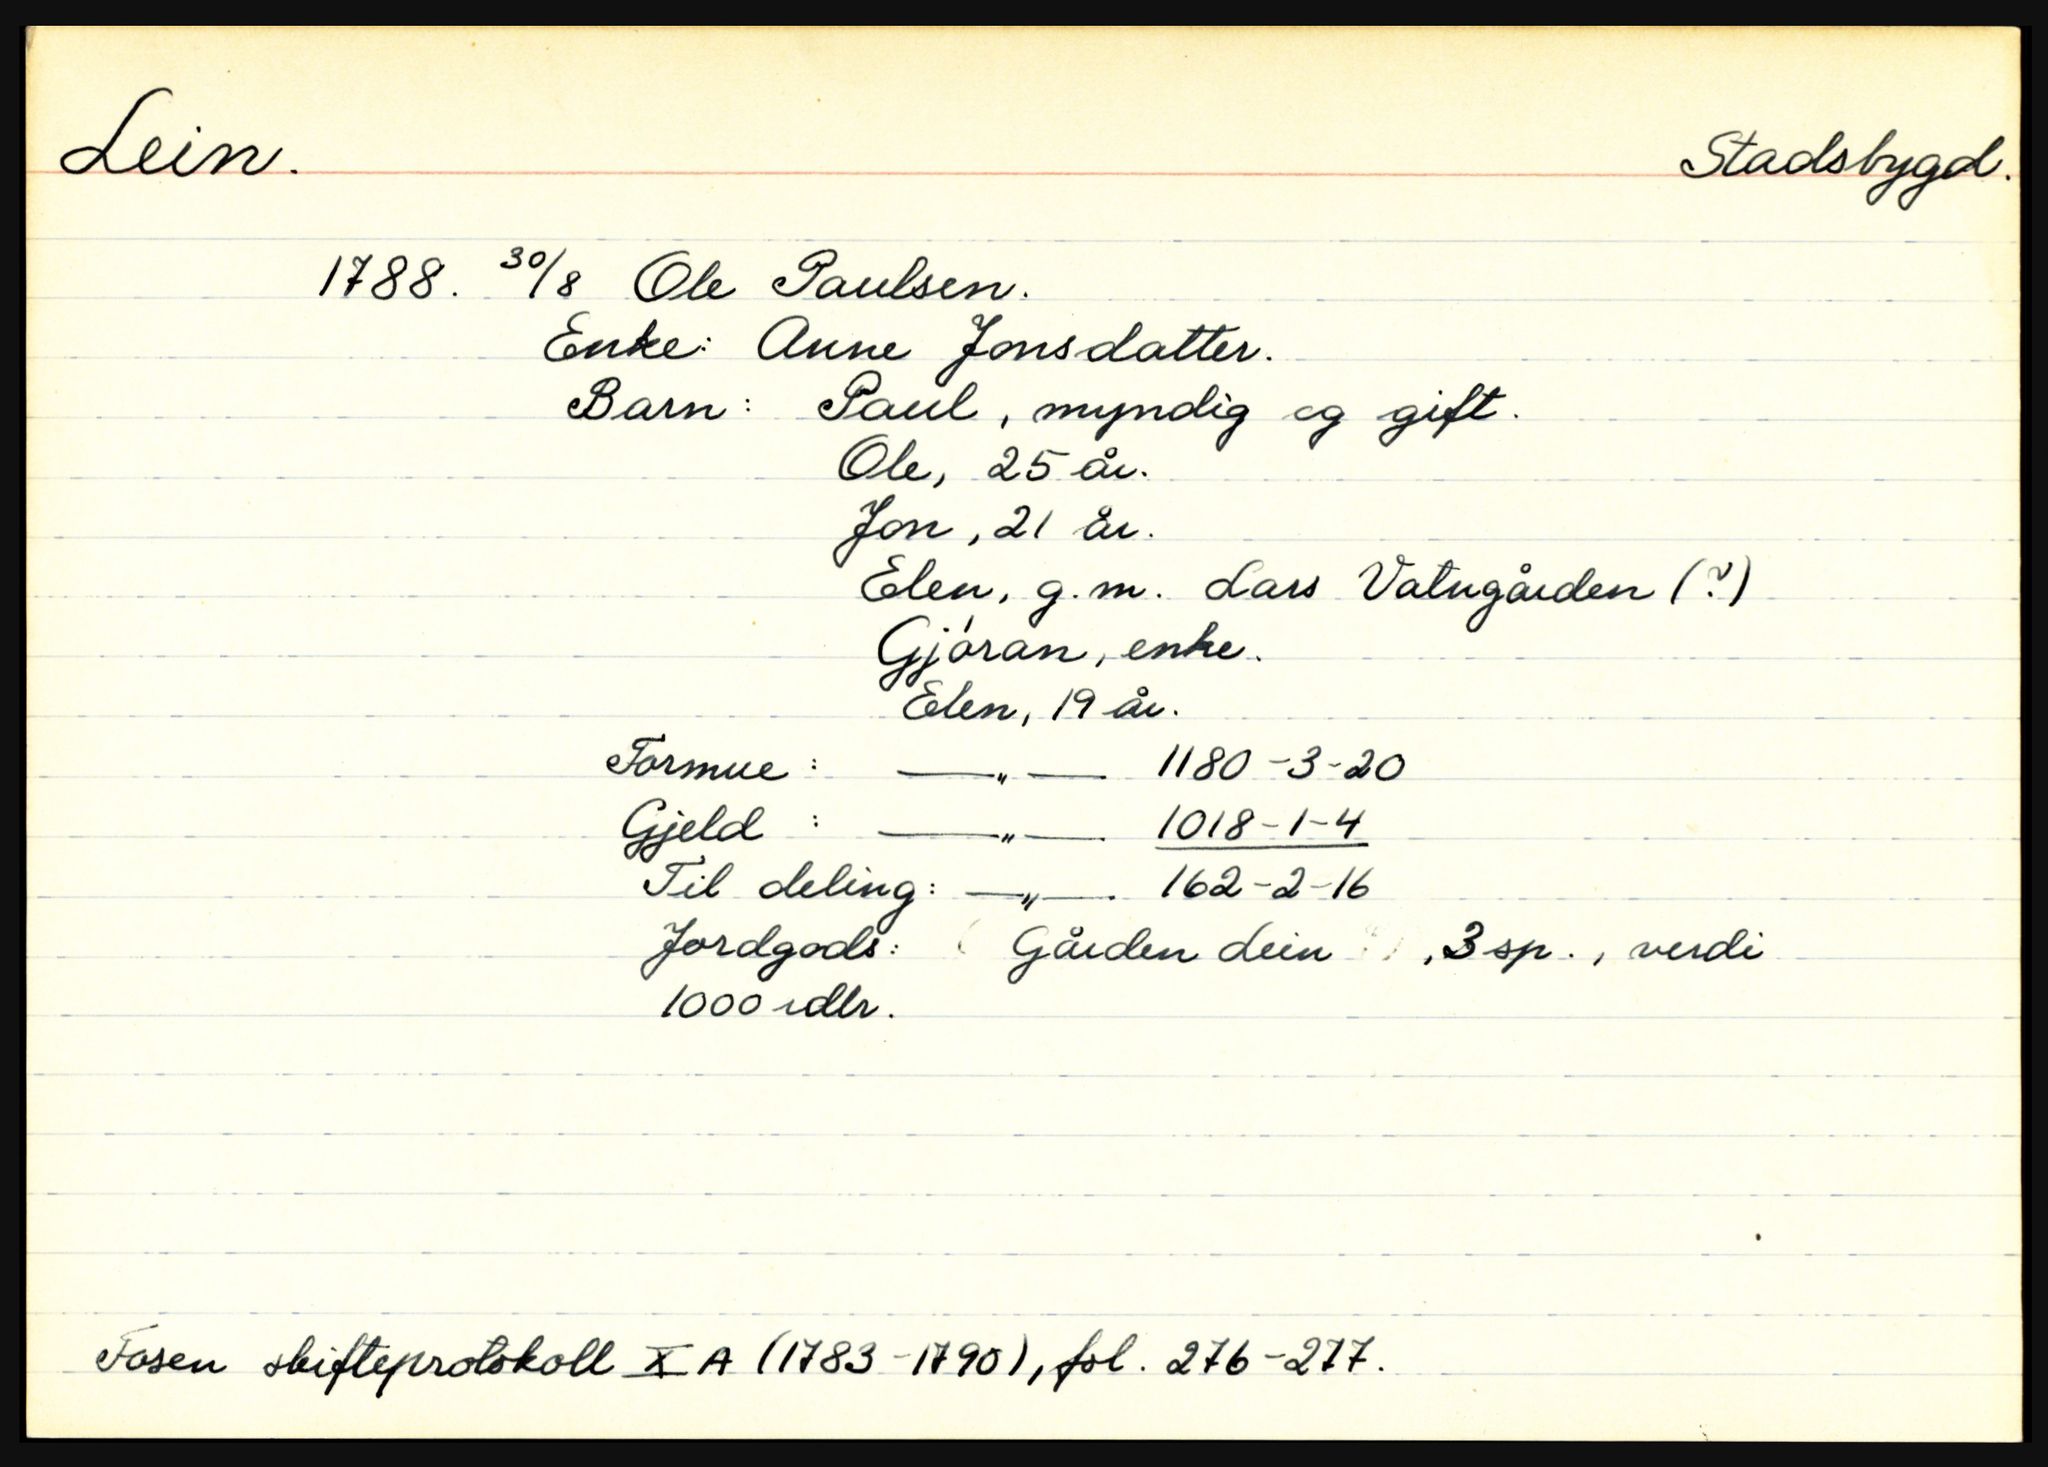 Lein. Stadsbygd.
1788. 30/8 Ole Paulsen.
Enke: Anne Jonsdatter.
Barn: Paul, myndig og gift.
Ole, 25 år.
Jon, 21 år.
Elen, g.m. Lars Vatngården (?)
Gjóran, enke.
Elen, 19 år.
Formue: —„— 1180-3-20
Gjeld : —„— 1018-1-4
Til deling: —„— 162-2-16
Jordgods: Gården Lein, 3 sp., verdi
1000 rdlr.
Fosen skifteprotokoll X A (1783-1790), fol. 276-277.